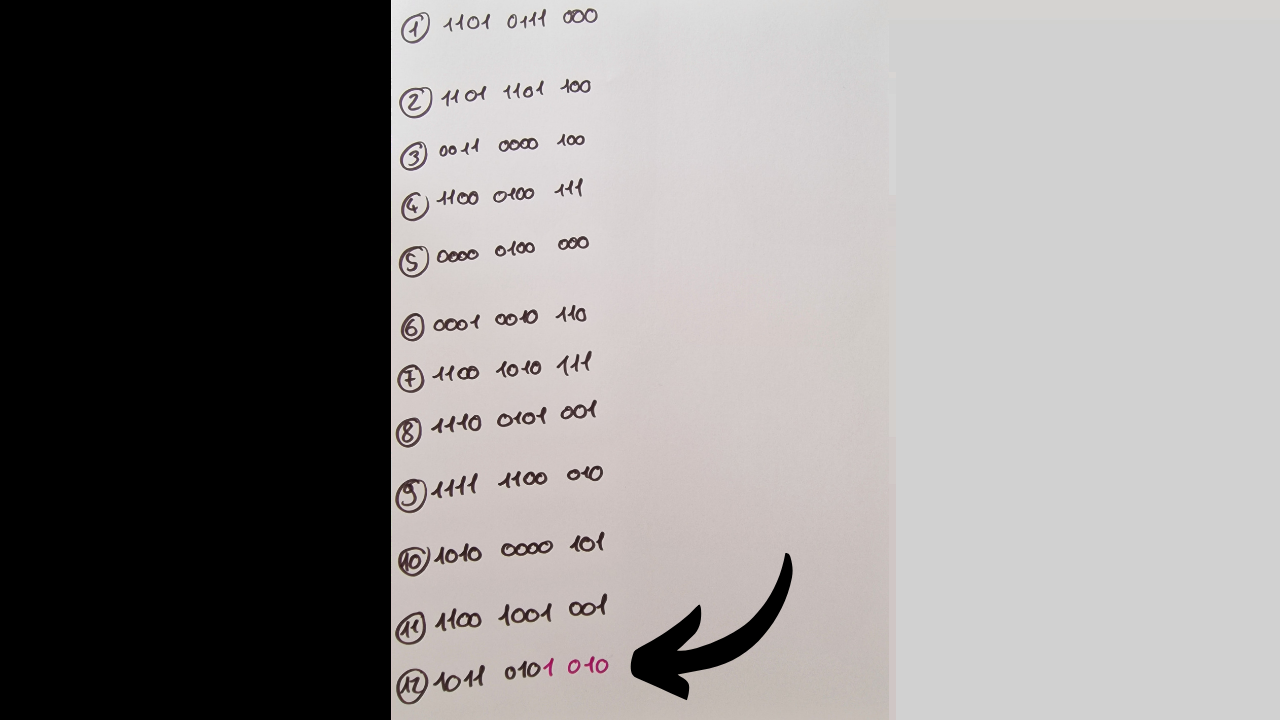 1 1101 0111 000
2 1101 1101 100
3 0011 0000 100
4 1100 0100 111
5 0000 0100 000
6 0001 0010 110
7 1100 1010 111
8 1110 0101 001
9 1111 1100 010
10 1010 0000 101
11 1100 1001 001
12 1011 0101 010